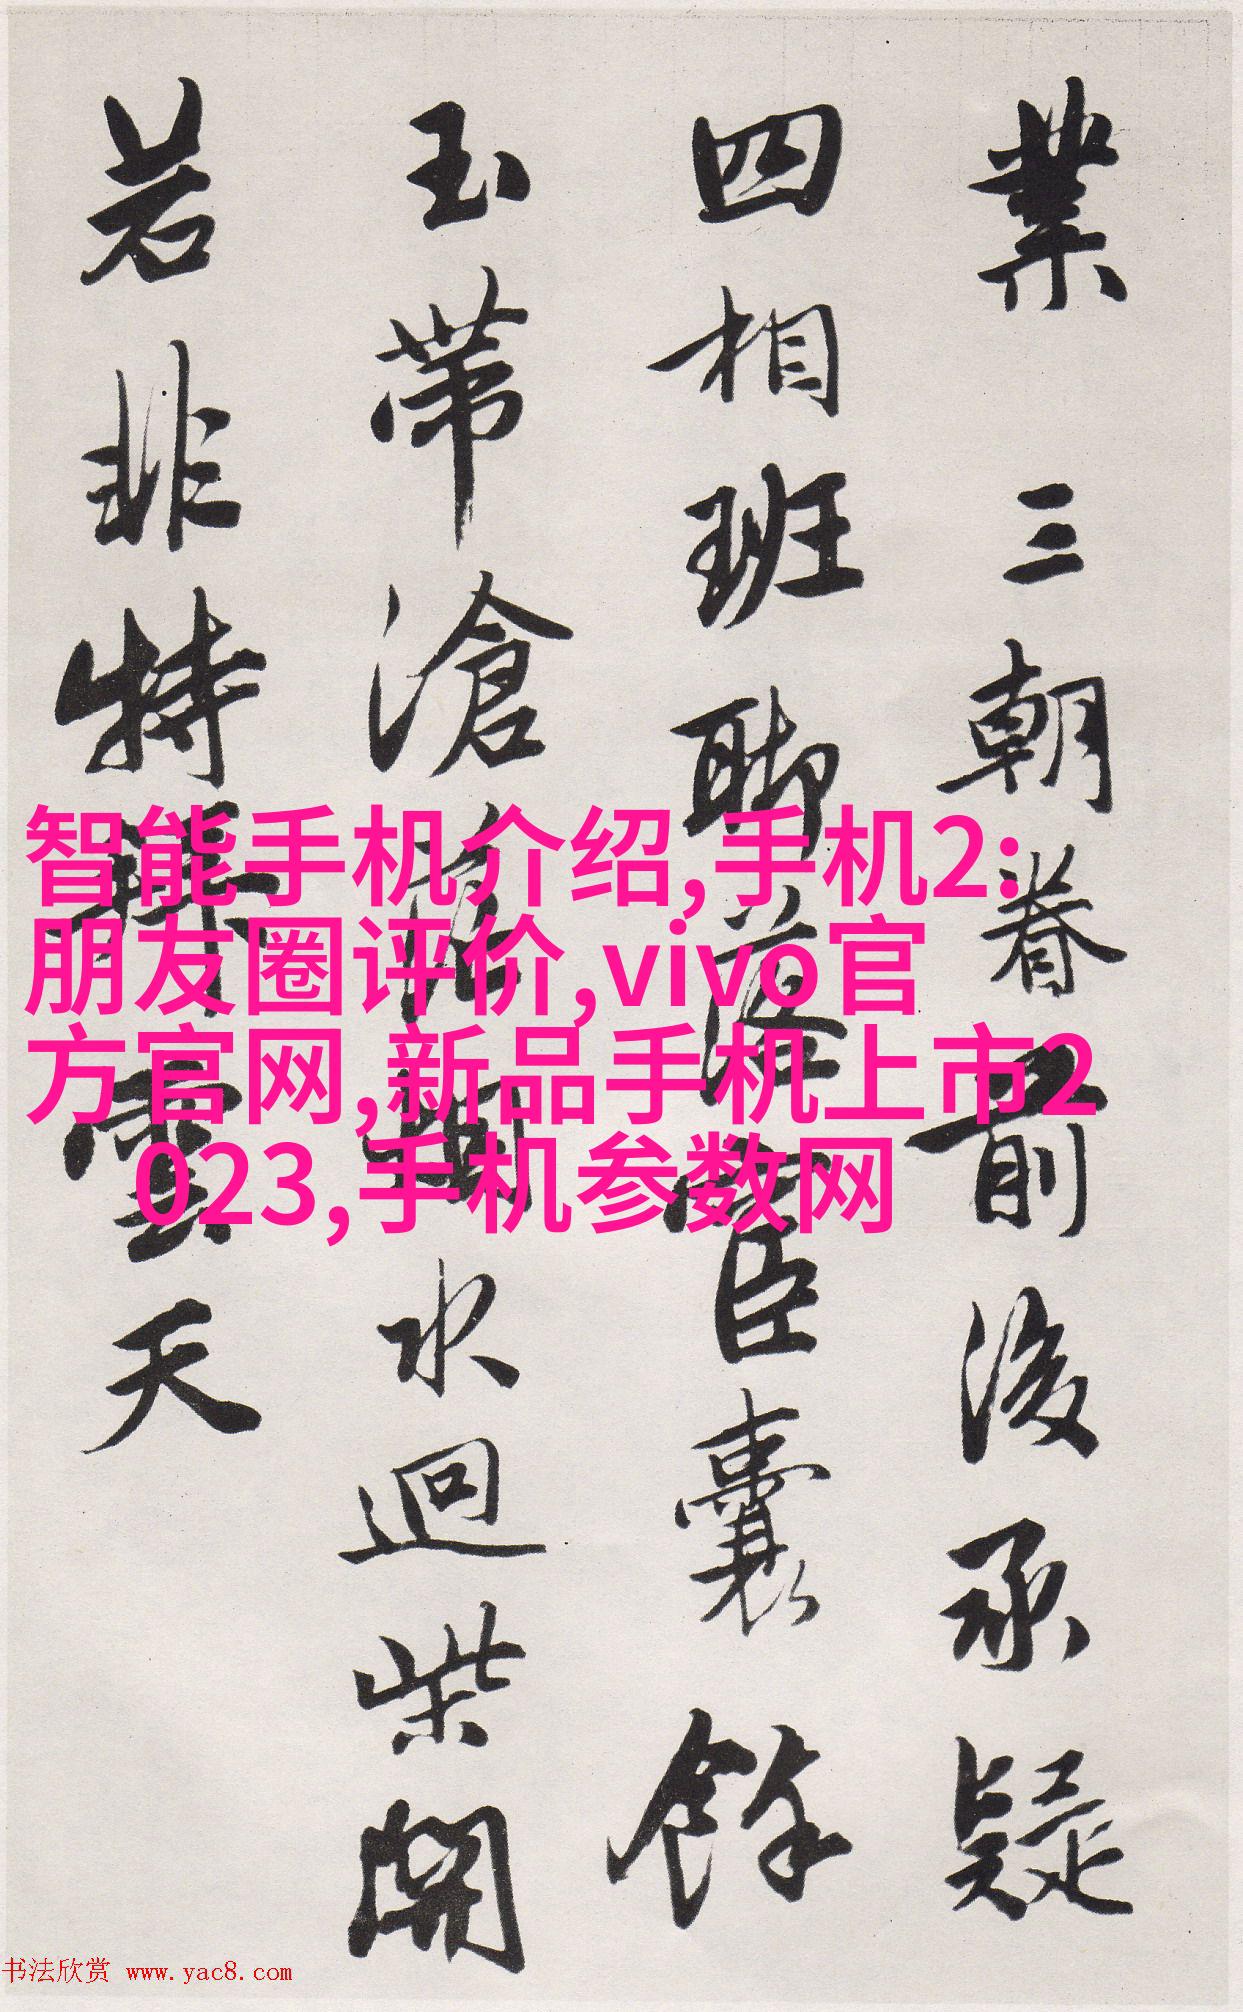 業三朝眷前後承疑
四相班聯臣囊餘
玉帶滄水迴柴開
若非特雲天
智能手机介绍,手机2:
朋友圈评价,vivo官
方官网,新品手机上市2
023,手机参数网
书法欣赏 www.yac8.com